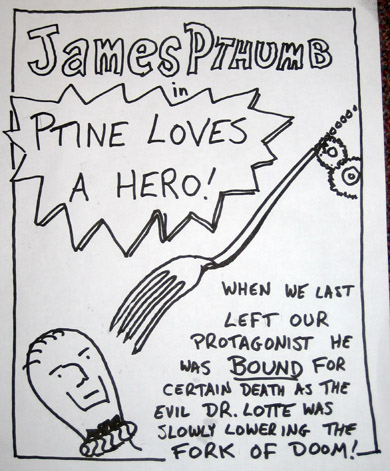 James PTHUMB
in
PTINE LOVES
A HERO!
WHEN WE LAST
LEFT OUR
PROTAGONIST HE
WAS BOUND FOR
CERTAIN DEATH AS THE
EVIL DR. LOTTE WAS
SLOWLY LOWERING THE
FORK OF DOOM!